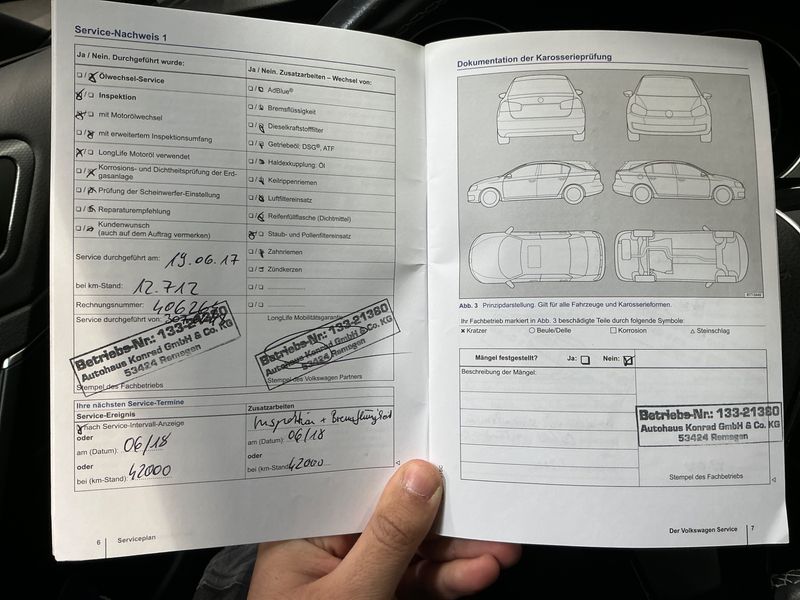 Service-Nachweis 1
Ja / Nein. Durchgeführt wurde:
Ölwechsel-Service
Inspektion
mit Motorölwechsel
mit erweitertem Inspektionsumfang
LongLife Motoröl verwendet
Korrosions- und Dichtheitsprüfung der Erd-
gasanlage
Prüfung der Scheinwerfer-Einstellung
Reparaturempfehlung
Kundenwunsch
(auch auf dem Auftrag vermerken)
Service durchgeführt am: 19.06.17
bei km-Stand: 12.712
Rechnungsnummer:
Service durchgeführt von:
Betriebs-Nr.: 133-21380
Autohaus Konrad GmbH & Co. KG
53424 Remagen
Stempel des Fachbetriebs
Ja / Nein. Zusatzarbeiten – Wechsel von:
AdBlue®
Bremsflüssigkeit
Dieselkraftstofffilter
Getriebeöl: DSG®, ATF
Haldexkupplung: Öl
Keilrippenriemen
Luftfiltereinsatz
Reifenfüllflasche (Dichtmittel)
Staub- und Pollenfiltereinsatz
Zahnriemen
Zündkerzen
LongLife Mobilitätsgarantie
Betriebs-Nr.: 133-21380
Autohaus Konrad GmbH & Co. KG
53424 Remagen
Stempel des Volkswagen Partners
Ihre nächsten Service-Termine
Service-Ereignis
nach Service-Intervall-Anzeige
oder
am (Datum): 06/18
oder
bei (km-Stand): 42000
Zusatzarbeiten
Inspektion + Bremsflüssigkeit
am (Datum): 06/18
oder
bei (km-Stand) 42000
6 Serviceplan
Dokumentation der Karosserieprüfung
Abb. 3 Prinzipdarstellung. Gilt für alle Fahrzeuge und Karosserieformen.
Ihr Fachbetrieb markiert in Abb. 3 beschädigte Teile durch folgende Symbole:
× Kratzer ○ Beule/Delle □ Korrosion △ Steinschlag
Mängel festgestellt? Ja: Nein:
Beschreibung der Mängel:
Betriebs-Nr.: 133-21380
Autohaus Konrad GmbH & Co. KG
53424 Remagen
Stempel des Fachbetriebs
Der Volkswagen Service 7